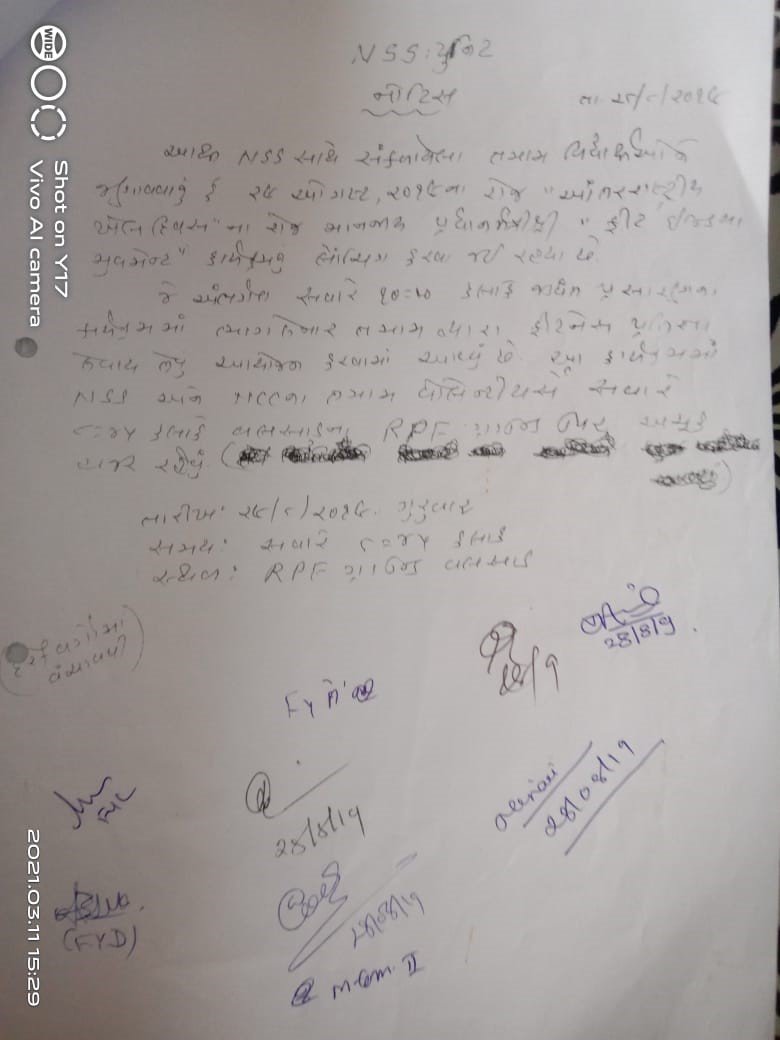 NSS યુનિટ
નોટિસ
તા. ૨૮/૮/૨૦૧૯
આથી NSS સાથે સંકળાયેલા તમામ વિદ્યાર્થીઓને
જણાવવાનું કે ૨૯ ઓગસ્ટ, ૨૦૧૯ના રોજ "આંતરરાષ્ટ્રીય
ખેલ દિવસ" ના રોજ માનનીય પ્રધાનમંત્રીશ્રી "ફીટ ઇન્ડિયા
મુવમેન્ટ" કાર્યક્રમનું લોંચિંગ કરવા જઈ રહ્યા છે.
જે અંતર્ગત સવારે ૧૦=૦૦ કલાકે જીવંત પ્રસારણના
કાર્યક્રમમાં ભાગ લેનાર તમામ દ્વારા ફીટનેસ પ્રતિજ્ઞા
લેવાય તેવું આયોજન કરવામાં આવ્યું છે. આ કાર્યક્રમમાં
NSS અને NCCના તમામ વોલિન્ટીયર્સે સવારે
૮=૪૫ કલાકે વલસાડના RPF ગ્રાઉન્ડ પર અચૂક
હાજર રહેવું. (
)
તારીખ: ૨૯/૮/૨૦૧૯. ગુરુવાર
સમય: સવારે ૮=૪૫ કલાકે
સ્થળ: RPF ગ્રાઉન્ડ વલસાડ
(દરેક વર્ગોમાં
વંચાવવી)
28/8/9.
28/9
FY
28/8/19
28/08/19
(FYD)
28/08/19
M.Com. II
WIDE
Shot on Y17
Vivo AI camera
2021.03.11 15:29